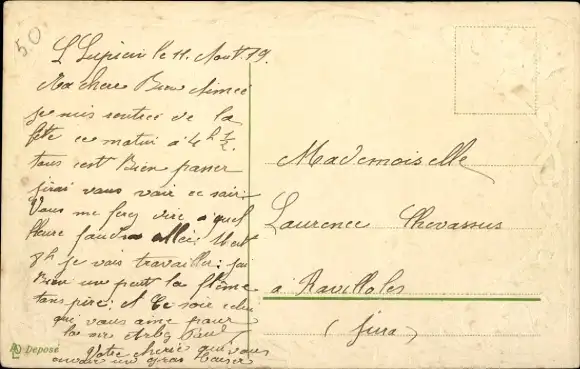 50
L Lupicin le 11. Aout. 19.
Ma chère Bien Aimée
je suis rentrée de la
fête ce matin à 4h 1/2.
tous c'est Bien passer
jirai vous voir ce soir.
Vous me ferez dire à quel
heure faudra aller
8h je vais travailler: jai
Bien un peut la flème
tans pire: A Ce soir celui
qui vous aime pour
la vie
Votre cherie qui vous
envoir un gros Baiser
Mademoiselle
Laurence Chevassus
à Ravilloles
(Jura)
Déposé